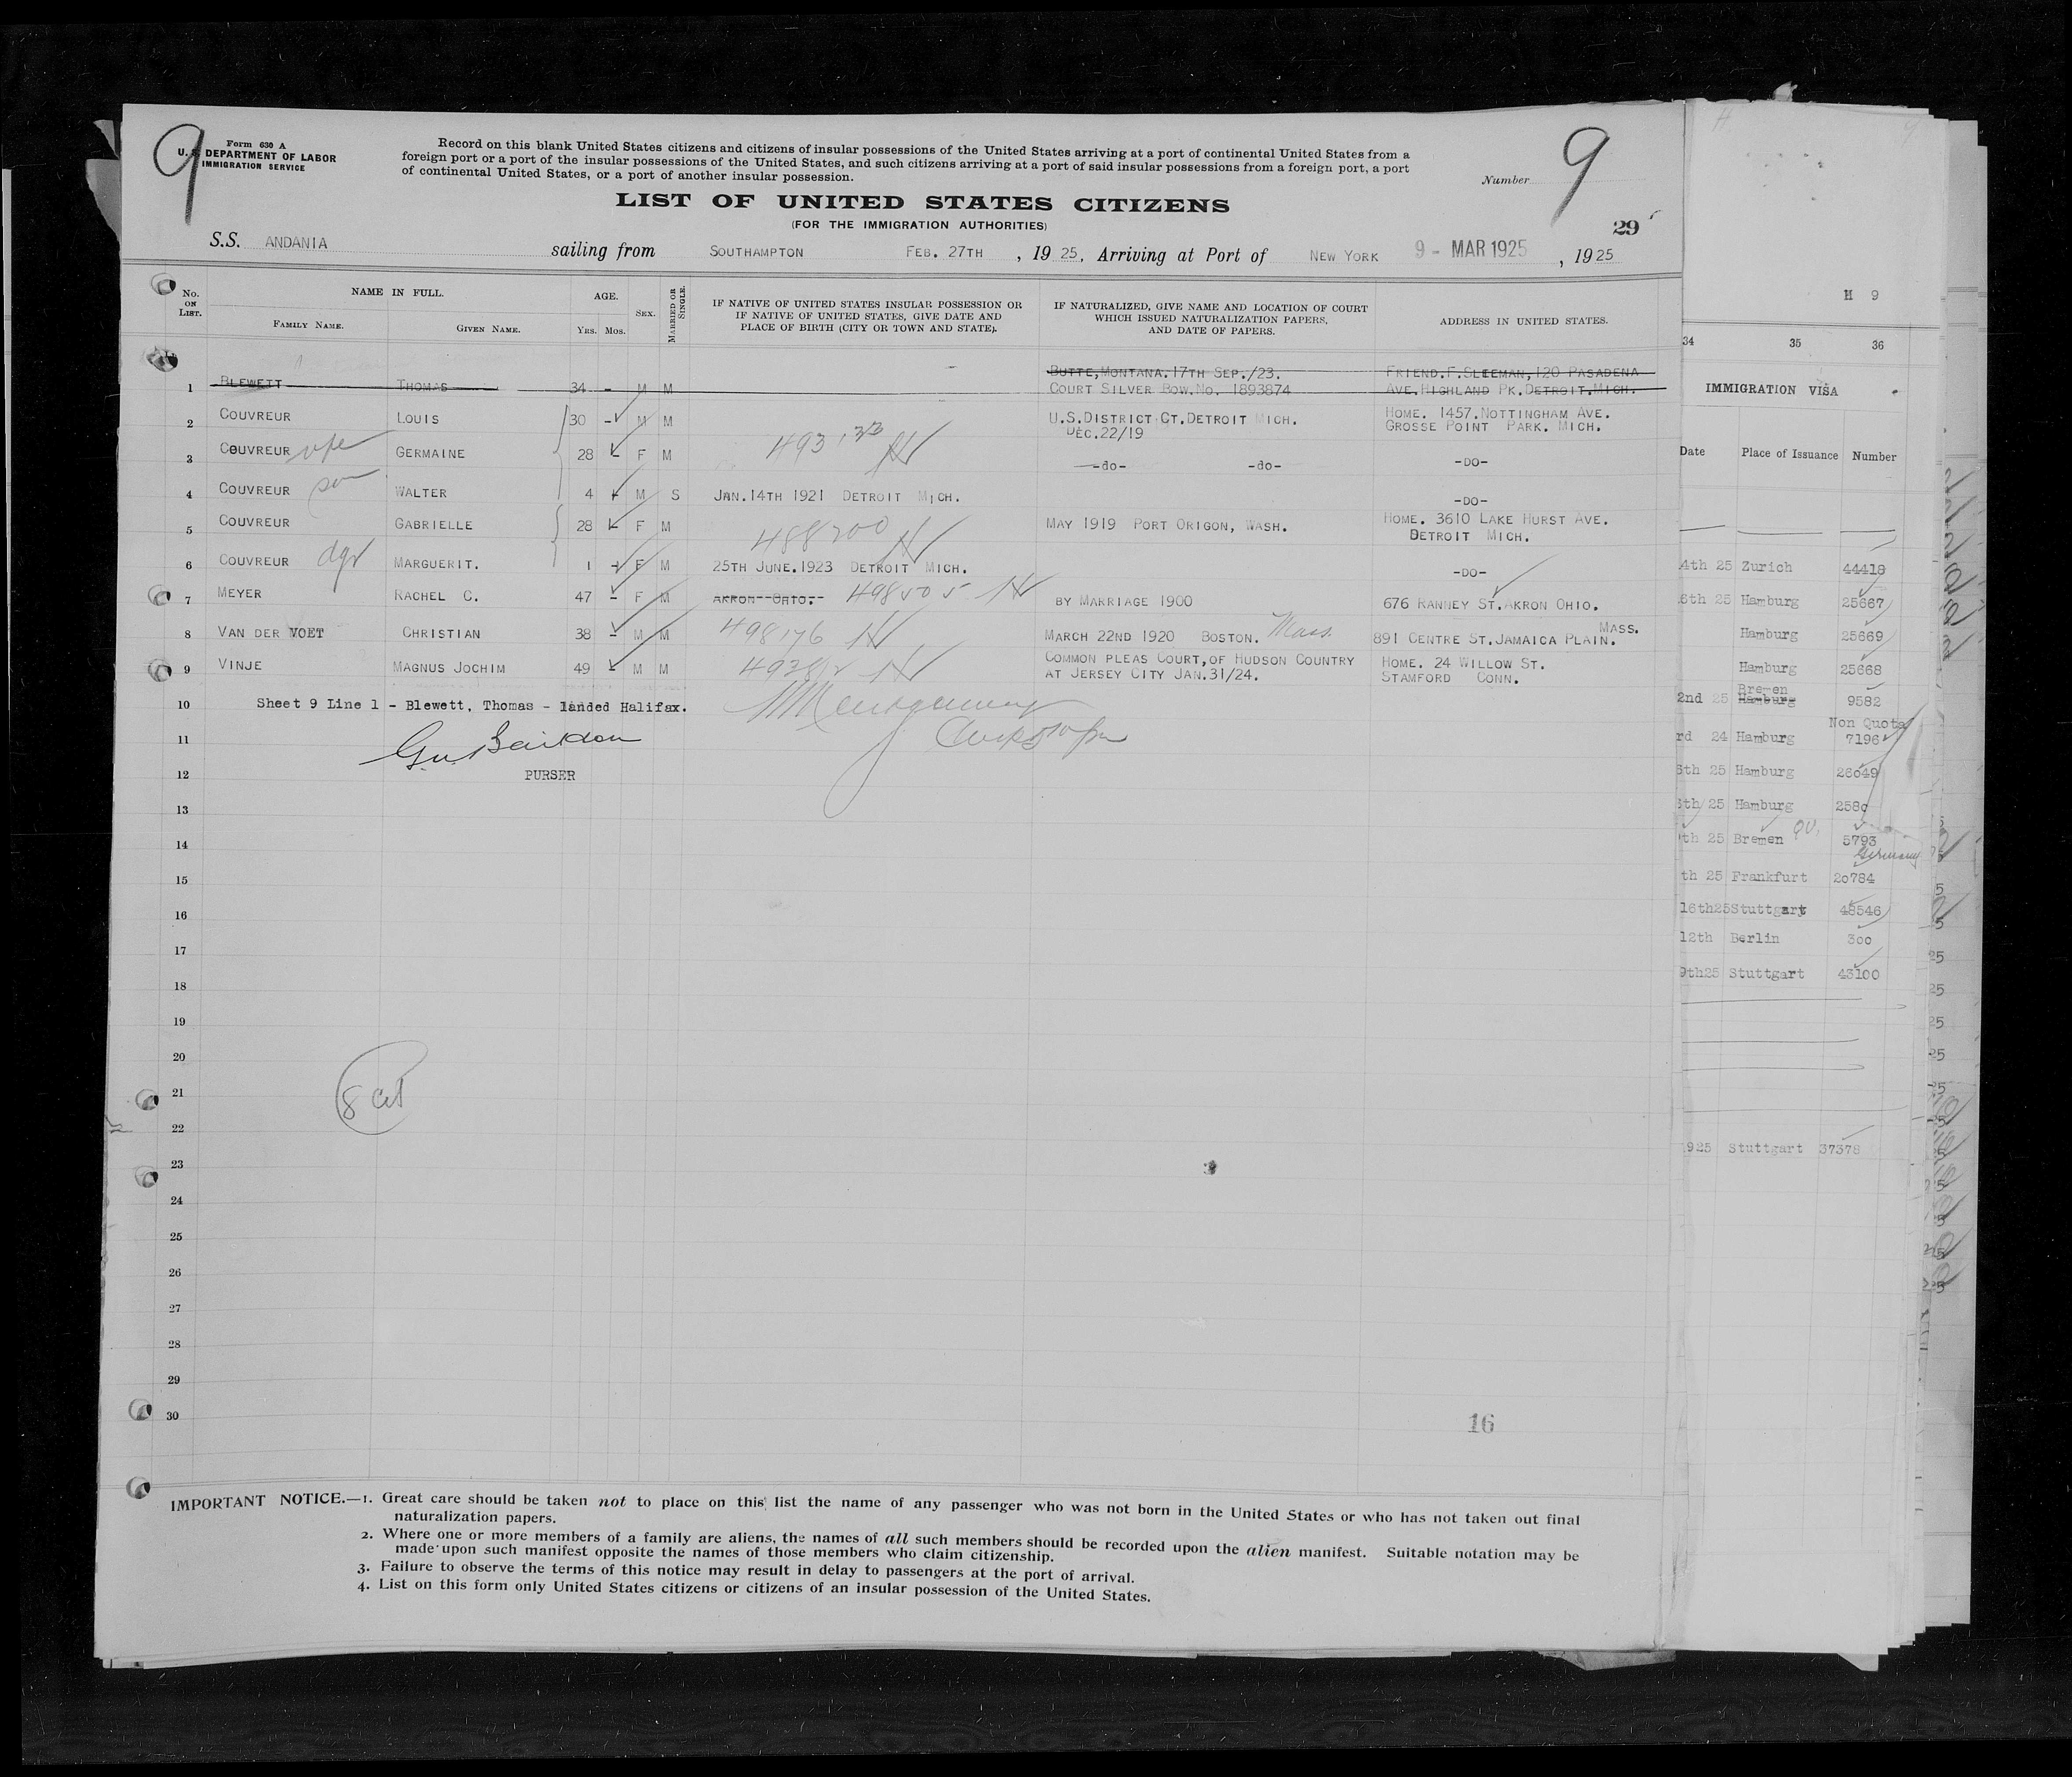 9
Form 630 A
U. S. DEPARTMENT OF LABOR
IMMIGRATION SERVICE
Record on this blank United States citizens and citizens of insular possessions of the United States arriving at a port of continental United States from a
foreign port or a port of the insular possessions of the United States, and such citizens arriving at a port of said insular possessions from a foreign port, a port
of continental United States, or a port of another insular possession.
Number 9
LIST OF UNITED STATES CITIZENS
(FOR THE IMMIGRATION AUTHORITIES)
29
S.S. ANDANIA sailing from SOUTHAMPTON FEB. 27TH, 1925, Arriving at Port of NEW YORK 9 - MAR 1925, 1925
No. ON LIST. NAME IN FULL. FAMILY NAME. GIVEN NAME. AGE. YRS. MOS. SEX. MARRIED OR SINGLE. IF NATIVE OF UNITED STATES INSULAR POSSESSION OR IF NATIVE OF UNITED STATES, GIVE DATE AND PLACE OF BIRTH (CITY OR TOWN AND STATE). IF NATURALIZED, GIVE NAME AND LOCATION OF COURT WHICH ISSUED NATURALIZATION PAPERS, AND DATE OF PAPERS. ADDRESS IN UNITED STATES.
BUTTE, MONTANA. 17TH SEP./23. FRIEND. F. SLEEMAN, 120 PASADENA
1 BLEWETT THOMAS 34 - M M COURT SILVER BOW. NO. 1893874 AVE. HIGHLAND PK. DETROIT. MICH.
2 COUVREUR LOUIS 30 - M M U.S. DISTRICT CT. DETROIT MICH. HOME. 1457. NOTTINGHAM AVE.
DEC. 22/19 GROSSE POINT PARK. MICH.
3 COUVREUR GERMAINE 28 - F M 493133 -do- -do- -DO-
4 COUVREUR son WALTER 4 - M S JAN. 14TH 1921 DETROIT MICH. -DO-
5 COUVREUR GABRIELLE 28 - F M 488200 MAY 1919 PORT ORIGON, WASH. HOME. 3610 LAKE HURST AVE.
DETROIT MICH.
6 COUVREUR dgr MARGUERIT. 1 - F M 25TH JUNE. 1923 DETROIT MICH. -DO-
7 MEYER RACHEL C. 47 - F M AKRON--OHIO.-- 498505 BY MARRIAGE 1900 676 RANNEY ST. AKRON OHIO.
8 VAN DER VOET CHRISTIAN 38 - M M 498176 MARCH 22ND 1920 BOSTON. Mass. 891 CENTRE ST. JAMAICA PLAIN. MASS.
9 VINJE MAGNUS JOCHIM 49 - M M COMMON PLEAS COURT, OF HUDSON COUNTRY HOME. 24 WILLOW ST.
AT JERSEY CITY JAN. 31/24. STAMFORD CONN.
10 Sheet 9 Line 1 - Blewett, Thomas - landed Halifax.
11
12 PURSER
13
14
15
16
17
18
19
20
21
22
23
24
25
26
27
28
29
30
16
IMPORTANT NOTICE.—1. Great care should be taken not to place on this list the name of any passenger who was not born in the United States or who has not taken out final
naturalization papers.
2. Where one or more members of a family are aliens, the names of all such members should be recorded upon the alien manifest. Suitable notation may be
made upon such manifest opposite the names of those members who claim citizenship.
3. Failure to observe the terms of this notice may result in delay to passengers at the port of arrival.
4. List on this form only United States citizens or citizens of an insular possession of the United States.
H 9
34 35 36
IMMIGRATION VISA
Date Place of Issuance Number
4th 25 Zurich 44418
6th 25 Hamburg 25667
Hamburg 25669
Hamburg 25668
Bremen
2nd 25 Hamburg 9582
Non Quota
rd 24 Hamburg 7196
6th 25 Hamburg 26049
25 Hamburg 258
th 25 Bremen 5793
Germany
th 25 Frankfurt 20784
16th25 Stuttgart 48546
12th Berlin 300
9th25 Stuttgart 43100
925 Stuttgart 37378